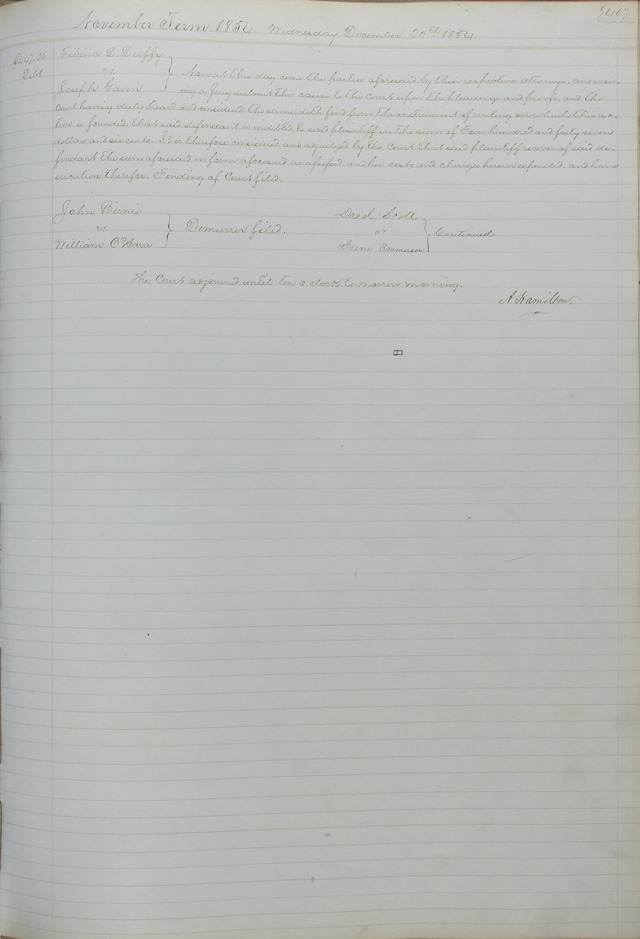 November Term 1854. Wednesday December 20th 1854.
447.06 Debt
D. Duffy
vs
Joseph
Now at this day come the parties aforesaid by their respective attorneys, and waiv
ing a Jury submit this cause to the Court upon the pleadings and proofs, and the
Court having duly heard and considered the same doth find from the instrument of writing on which this ac-
tion is founded, that said defendant is indebted to said plaintiff in the sum of Four hundred and forty seven
dollars and six cents. It is therefore considered and adjudged by the Court that said plaintiff recover of said de-
fendant the sum aforesaid in form aforesaid as and her costs and charges herein expended, and have
execution therefor. Finding of Court filed.
John Birnie
vs
William O'Hara
Demurrer filed.
Dred Scott
vs
Irene Emmerson
Continued
The Court adjourned until ten o'clock tomorrow morning.
A Hamilton.